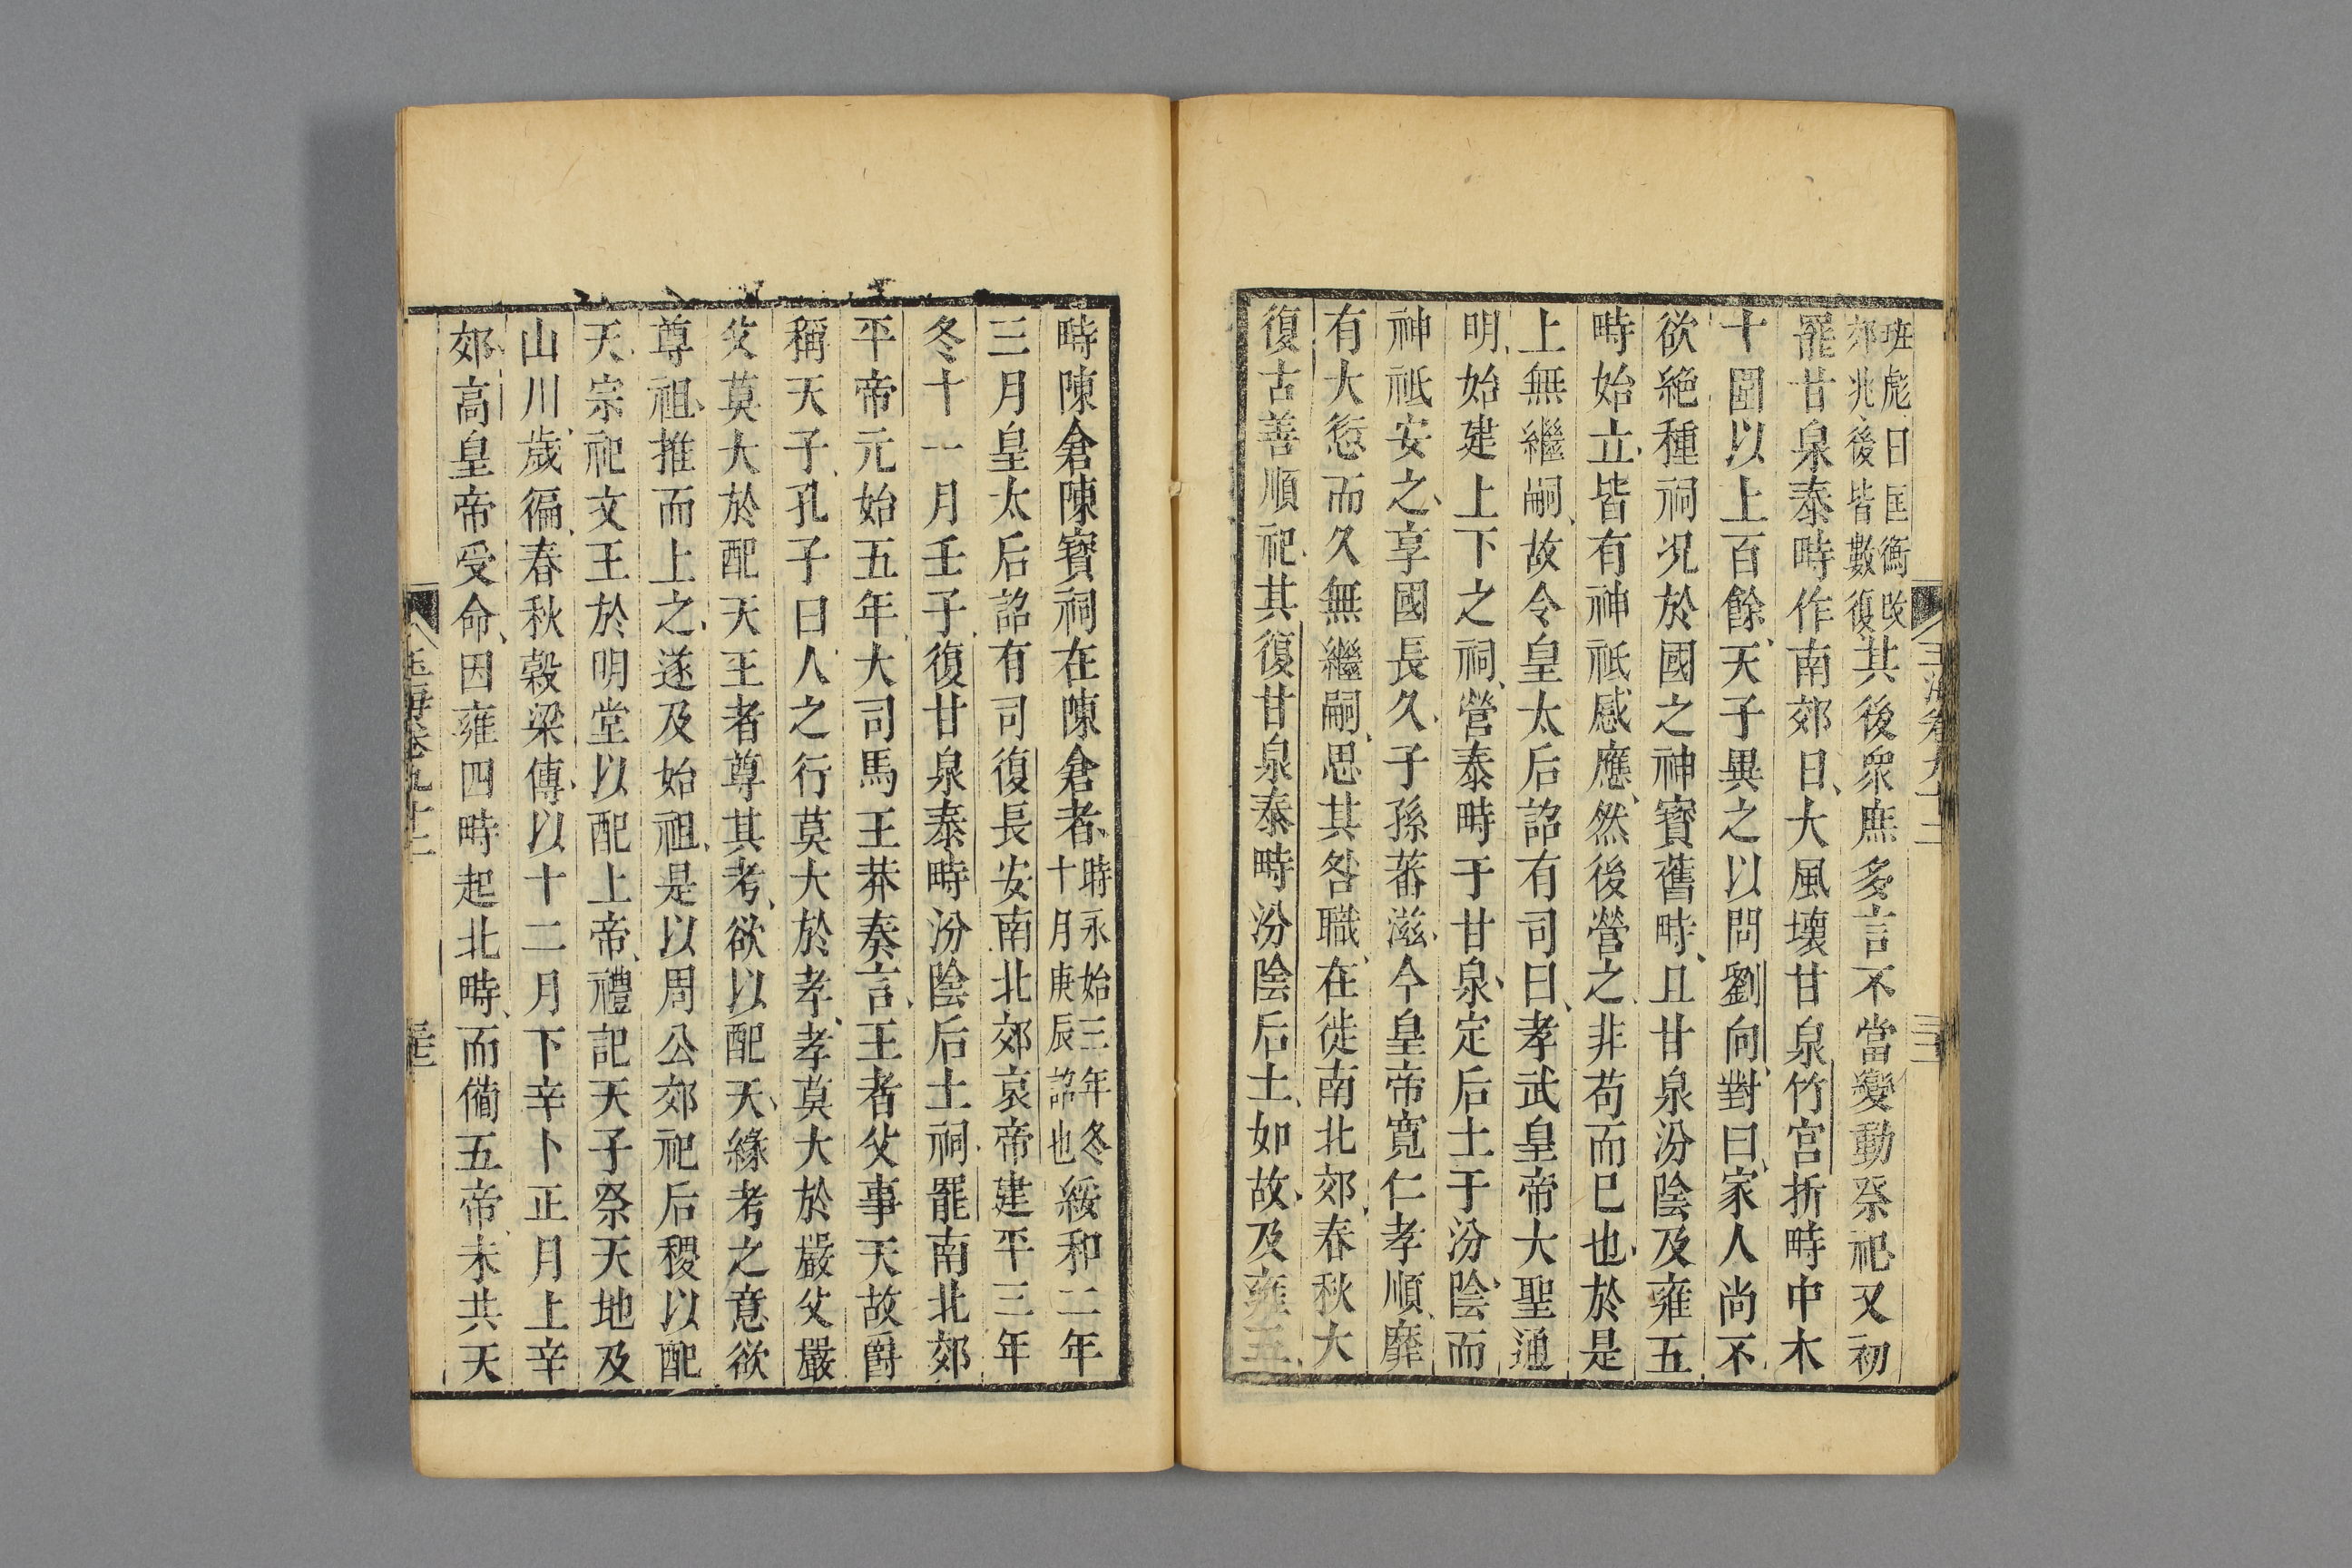 班彪曰匡衡改
郊兆後皆數復其後衆庶多言不當變動祭祀又初
罷甘泉泰畤作南郊日大風壞甘泉竹宮折畤中木
十圍以上百餘天子異之以問劉向對曰家人尚不
欲絶種祠況於國之神寳舊畤且甘泉汾陰及雍五
畤始立皆有神祇感應然後營之非苟而已也於是
上無繼嗣故令皇太后詔有司曰孝武皇帝大聖通
明始建上下之祠營泰畤于甘泉定后土于汾陰而
神祇安之享國長久子孫蕃滋今皇帝寬仁孝順靡
有大愆而久無繼嗣思其咎職在徙南北郊春秋大
復古善順祀其復甘泉泰畤汾陰后土如故及雍五
畤陳倉陳寳祠在陳倉者時永始三年冬
十月庚辰詔也綏和二年
三月皇太后詔有司復長安南北郊哀帝建平三年
冬十一月壬子復甘泉泰畤汾陰后土祠罷南北郊
平帝元始五年大司馬王莽奏言王者父事天故爵
稱天子孔子曰人之行莫大於孝孝莫大於嚴父嚴
父莫大於配天王者尊其考欲以配天緣考之意欲
尊祖推而上之遂及始祖是以周公郊祀后稷以配
天宗祀文王於明堂以配上帝禮記天子祭天地及
山川歲徧春秋榖梁傳以十二月下辛卜正月上辛
郊高皇帝受命因雍四畤起北畤而備五帝未共天
玉海卷九十二